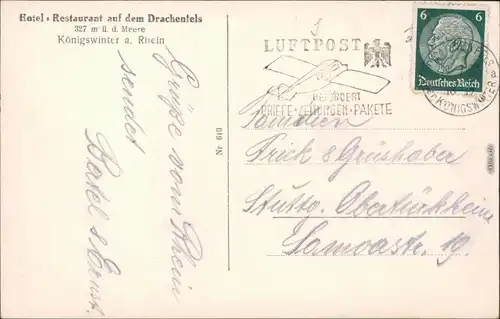 Hotel • Restaurant auf dem Drachenfels
327 m ü. d. Meere
Königswinter a. Rhein
Grüße vom Rhein
sendet
& Ernst.
No. 049
LUFTPOST
BEFÖRDERT
BRIEFE • ZEITUNGEN • PAKETE
6 6
Deutsches Reich
KÖNIGSWINTER
Familien
Frick & Grüshaber
Stuttg. Obertürkheim
Samoastr. 19.